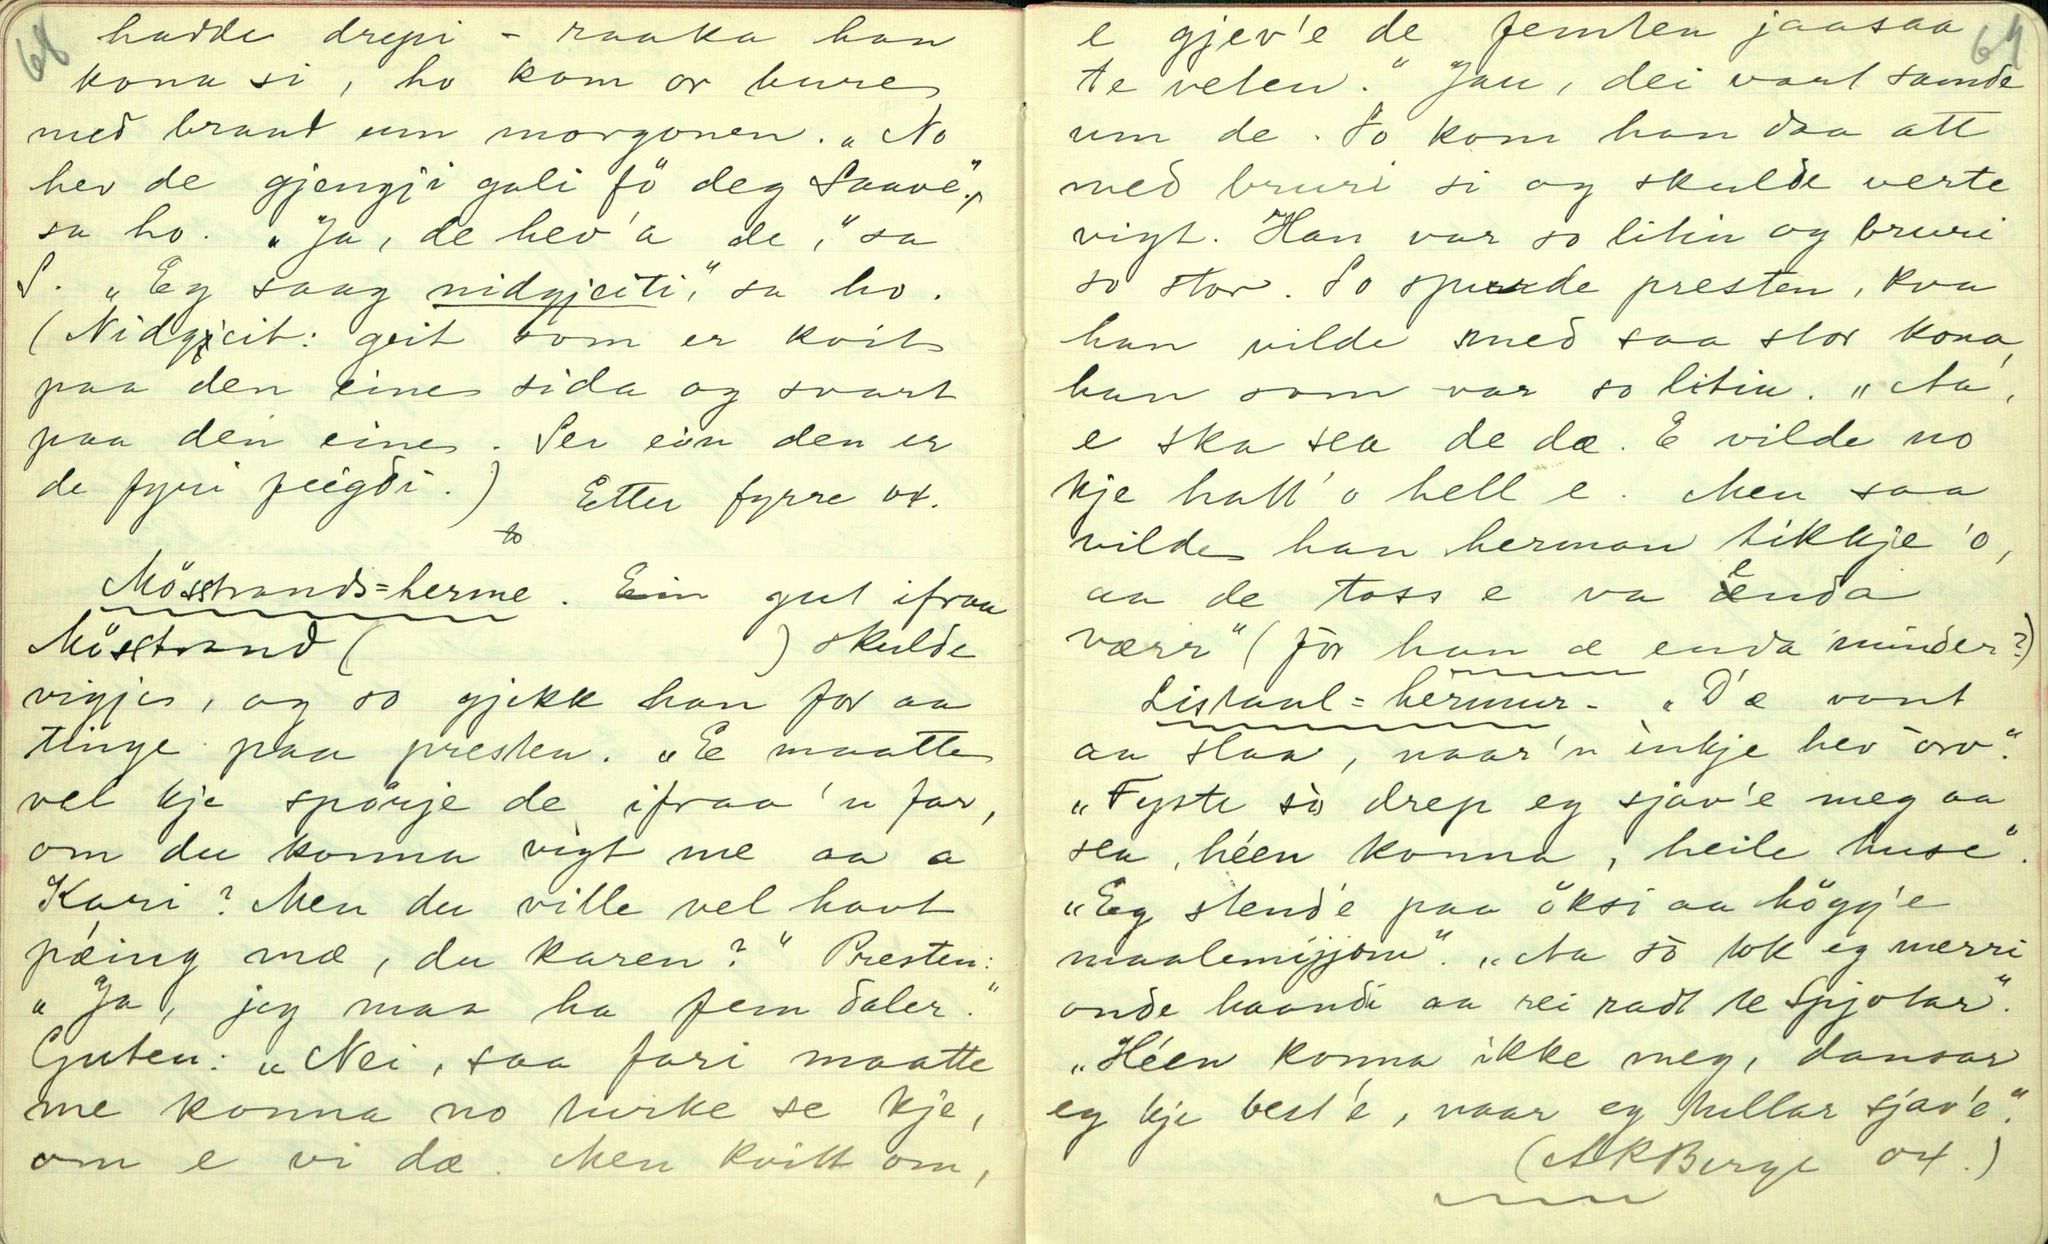 68
hadde drepi - raaka han
kona si, ho kom or bure
med braud um morgonen. „No
hev de gjengji gali fö deg Saave",
sa ho. „Ja, de hev'a de," sa
S. „Eg saag nidgjeiti," sa ho.
(Nidgjeit: geit som er kvit
paa den eine sida og svart
paa den eine. Ser ein den er
de fyri feigdi.) Etter fyrre ox.
Mösstrands=herme. Ein gut ifraa
Mösstrand ( ) skulde
vigjes, og so gjekk han for aa
tinge paa presten. „E maatte
vel kje spörje de ifraa 'n far,
om du konna vigt me aa a
Kari? Men du ville vel havt
pæing mæ, du karen?" Presten:
„Ja, jeg maa ha fem daler."
Guten: „Nei, saa fari maatte
me konna no turke se kje,
om e vi dæ. Men kvitt om,
69
e gjev'e de femten jaasaa
te veten." Jau, dei vart samde
um de. So kom han daa att
med bruri si og skulde verte
vigt. Han var so litin og bruri
so stor. So spurde presten, kva
han vilde med saa stor kona,
han som var so litin. „Aa,
e ska sea de dæ. E vilde no
kje hatt'o hell e. Men saa
vilde han herman tikkje 'o,
aa de toss e va enda
værr" (for han æ enda minder?)
Listaul=hermur - „D'æ vont
aa slaa, naar'n inkje hev orv".
„Fyste so drep eg sjav'e meg aa
sea, héen konna, heile huse".
„Eg stend'e paa öksi aa högg'e
maalemijjom". „Aa so tok eg merri
onde haandi aa rei radt te Spjotar".
„Héen konna ikke meg, dansar
eg kje best'e, naar eg tullar sjav'e".
(AKBerge ox.)